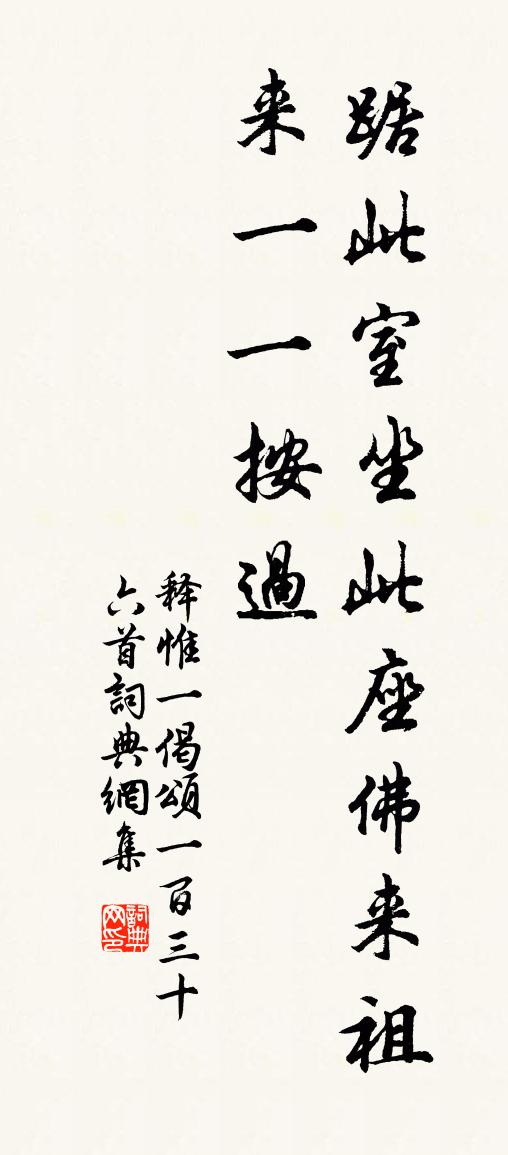 踞此室坐此座佛来祖
来一一按過
释惟一偈頌一百三十
六首詞典網集
詞典网印